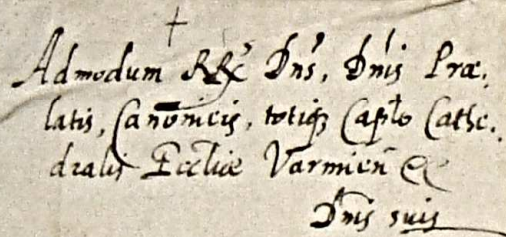 Admodum RR. Dns, Dnis Præ,
latis, Canonicis, totiq; Caplo Cathe,
dralis Eccliæ Varmien &
Dnis suis